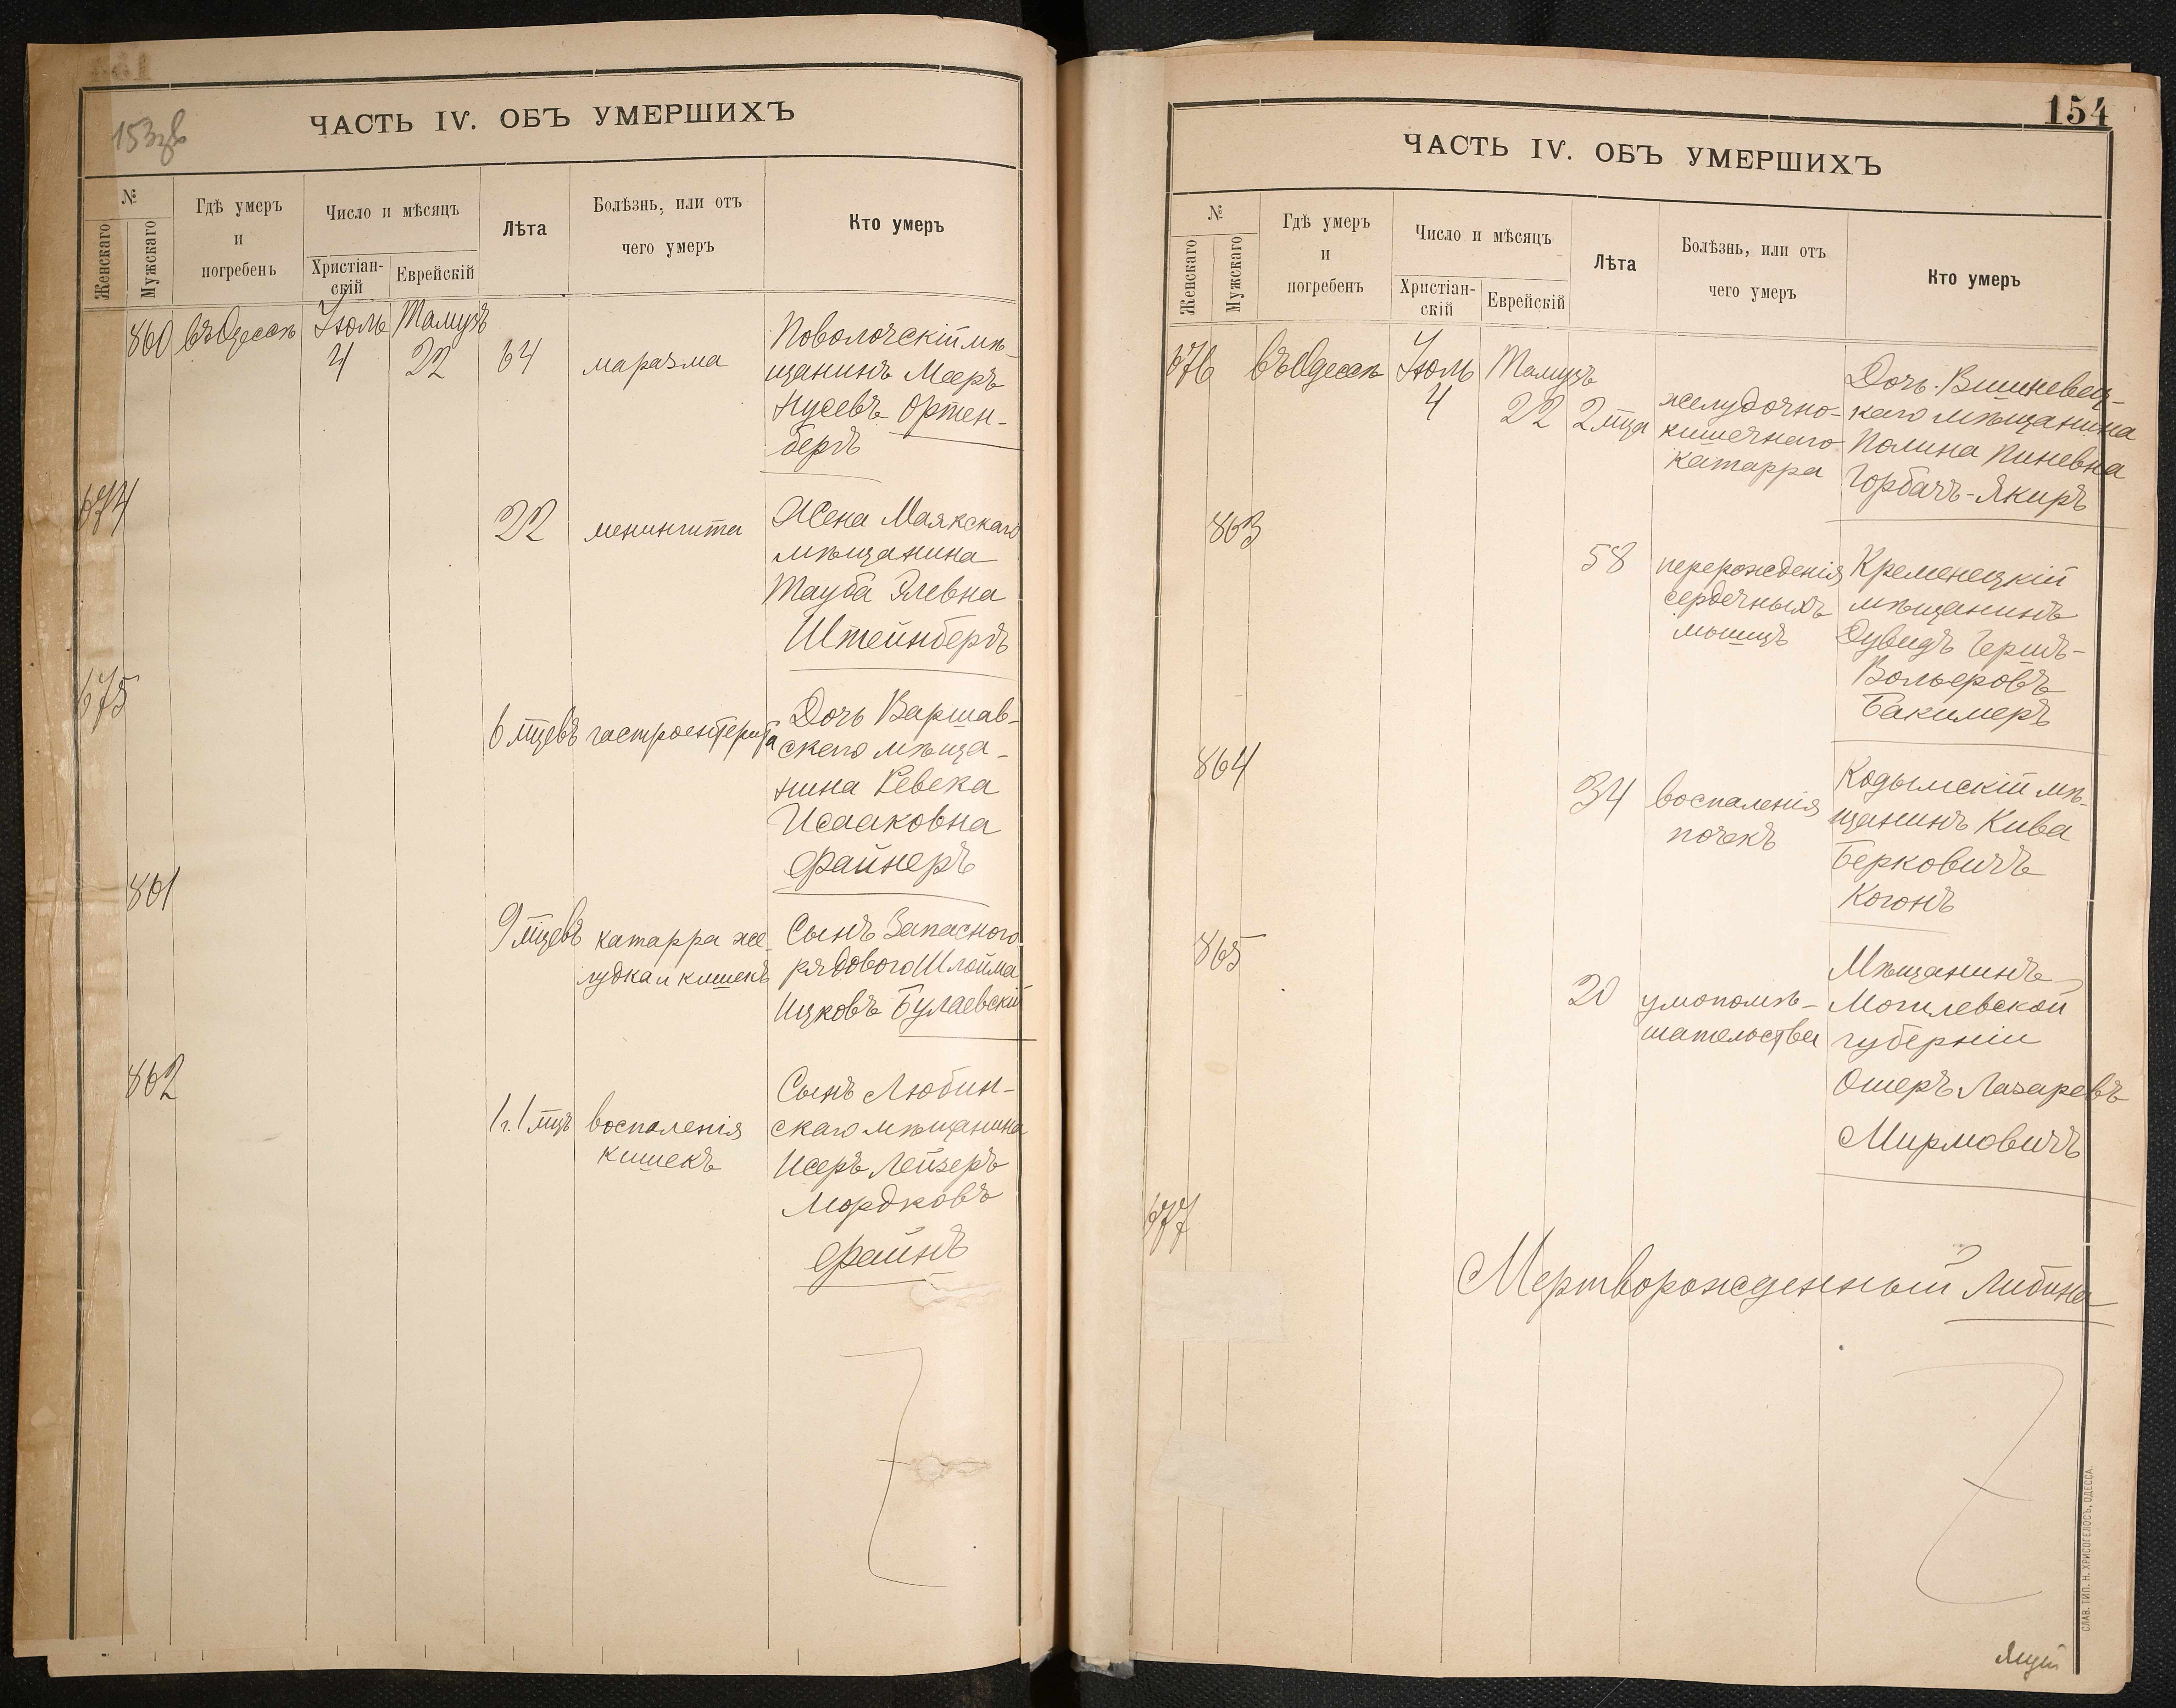 153об
ЧАСТЬ IV. ОБЪ УМЕРШИХЪ
№
Женскаго
Мужскаго
Гдѣ умеръ
и
погребенъ
Число и мѣсяцъ
Христіан-
скій
Еврейскій
Лѣта
Болѣзнь, или отъ
чего умеръ
Кто умеръ
860 въ Одессѣ Іюль Тамузъ
4 22 64 маразма
Поволочскій мѣ-
щанинъ Мееръ
Нусевъ Ортен-
бергъ
674
22 менингита
Жена Маякскаго
мѣщанина
Тауба Элевна
Штейнбергъ
675
6 мцевъ гастроентерита
Дочь Варшав-
скаго мѣща-
нина Ревека
Исааковна
Файнеръ
861
9 мцевъ катарра же-
лудка и кишекъ
Сынъ Запасного
рядового Шлойма
Ицковъ Булаевскій
862
1 г. 1 мцъ воспаленія
кишекъ
Сынъ Любин-
скаго мѣщанина
Исеръ Лейзеръ
Мордковъ
Файнъ
154
ЧАСТЬ IV. ОБЪ УМЕРШИХЪ
№
Женскаго
Мужскаго
Гдѣ умеръ
и
погребенъ
Число и мѣсяцъ
Христіан-
скій
Еврейскій
Лѣта
Болѣзнь, или отъ
чего умеръ
Кто умеръ
676 въ Одессѣ Іюль Тамузъ
4 22 2 мца
желудочно-
кишечнаго
катарра
Дочь Вишневец-
каго мѣщанина
Полина Пиневна
Горбачъ-Якиръ
863
58 перерожденія
сердечныхъ
мышцъ
Кременецкій
мѣщанинъ
Дувидъ Гершъ-
Вольфовъ
Бакимеръ
864
34 воспаленія
почекъ
Кодымскій мѣ-
щанинъ Кива
Берковичъ
Когонъ
865
20 умопомѣ-
шательства
Мѣщанинъ
Могилевской
губерніи
Ошеръ Лазаревъ
Мирмовичъ
677
Мертворожденный Либина
СЛАВ. ТИП. Н. ХРИСОГЕЛОСЪ, ОДЕССА.